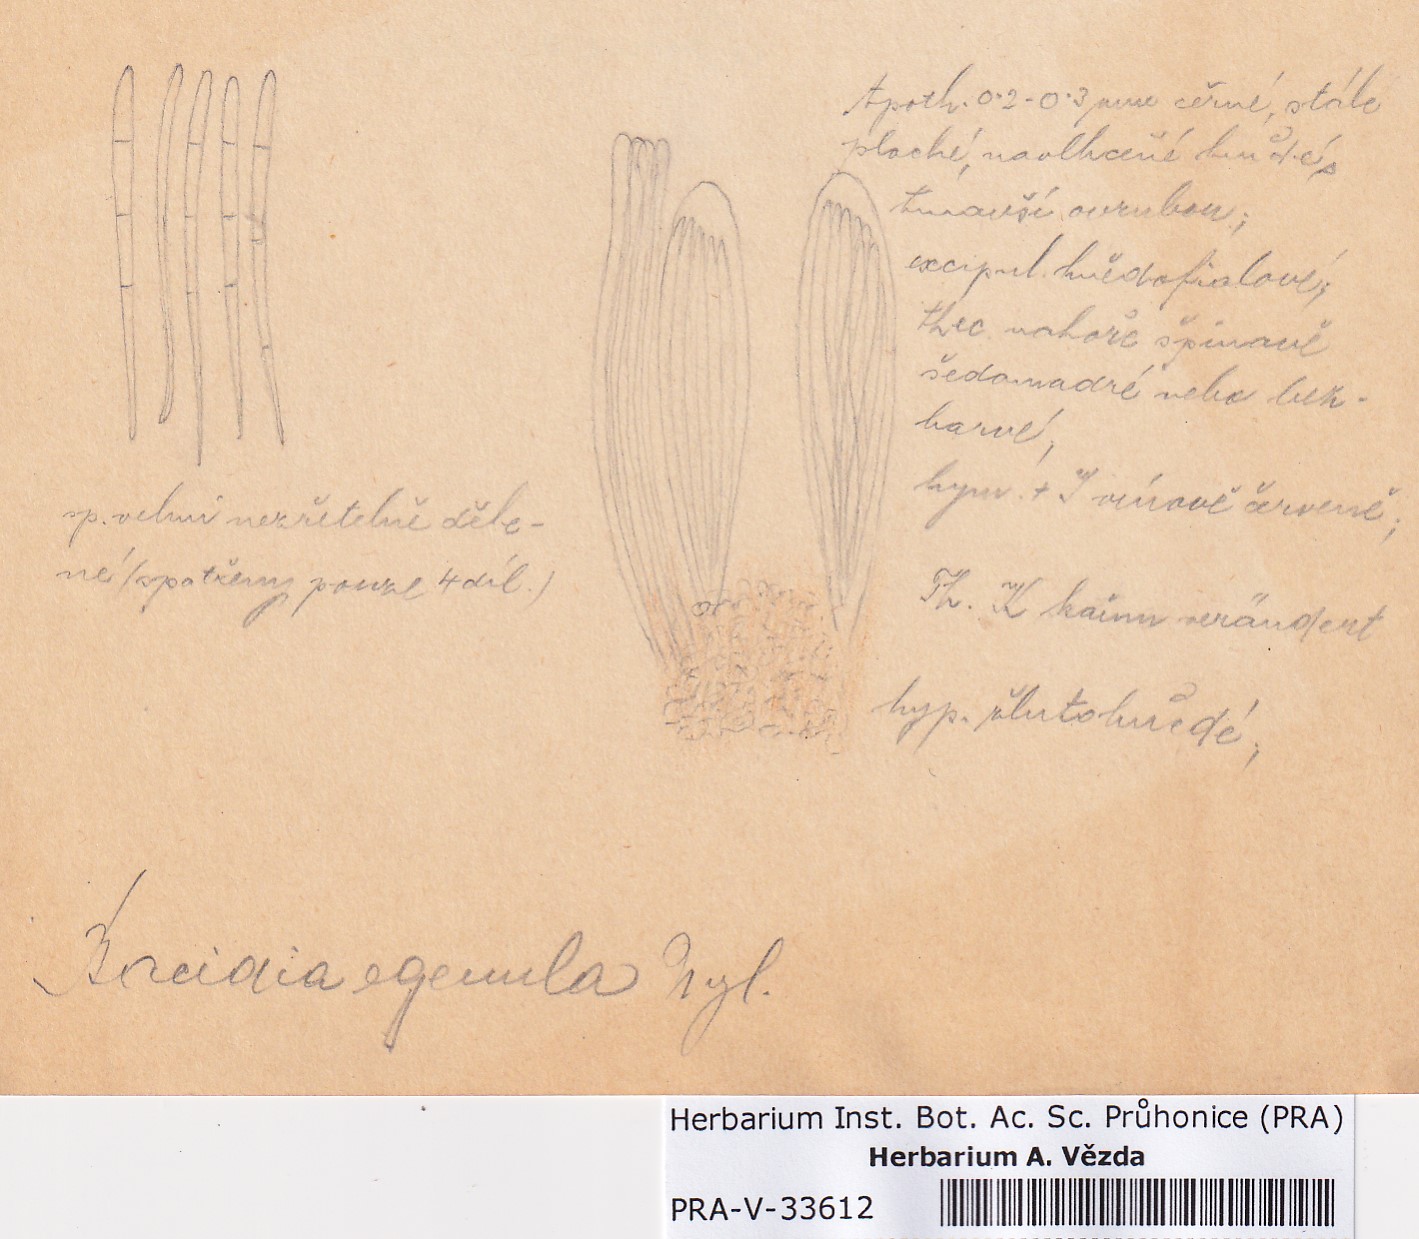 Apoth. 0·2-0·3 mm černé, stále
ploché, navlhčené hnědé, s
tmavší ovrubou;
excipul. hnědofialové;
thec. nahoře špinavě
šedomodré nebo bez-
barvé,
hym. + J vínově červené;
Th. K kaum verändert
hyp. žlutohnědé;
sp. velmi nezřetelně děle-
né (spatřeny pouze 4 díl.)
Bacidia egenula Nyl.
Herbarium Inst. Bot. Ac. Sc. Průhonice (PRA)
Herbarium A. Vězda
PRA-V-33612